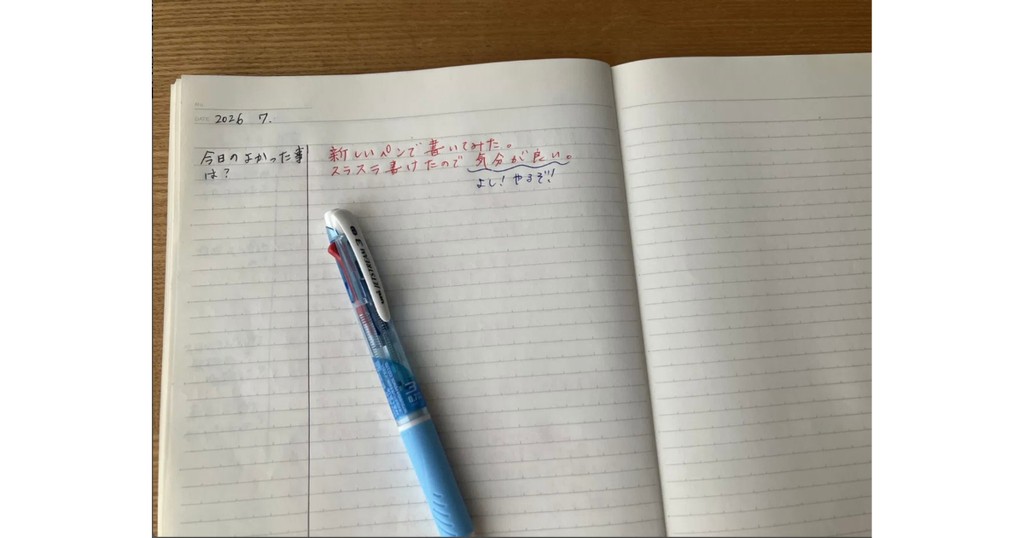 DATE 2026 7.
今日のよかった事
は?
新しいペンで書いてみた。
スラスラ書けたので気分が良い。
よし!やるぞ!